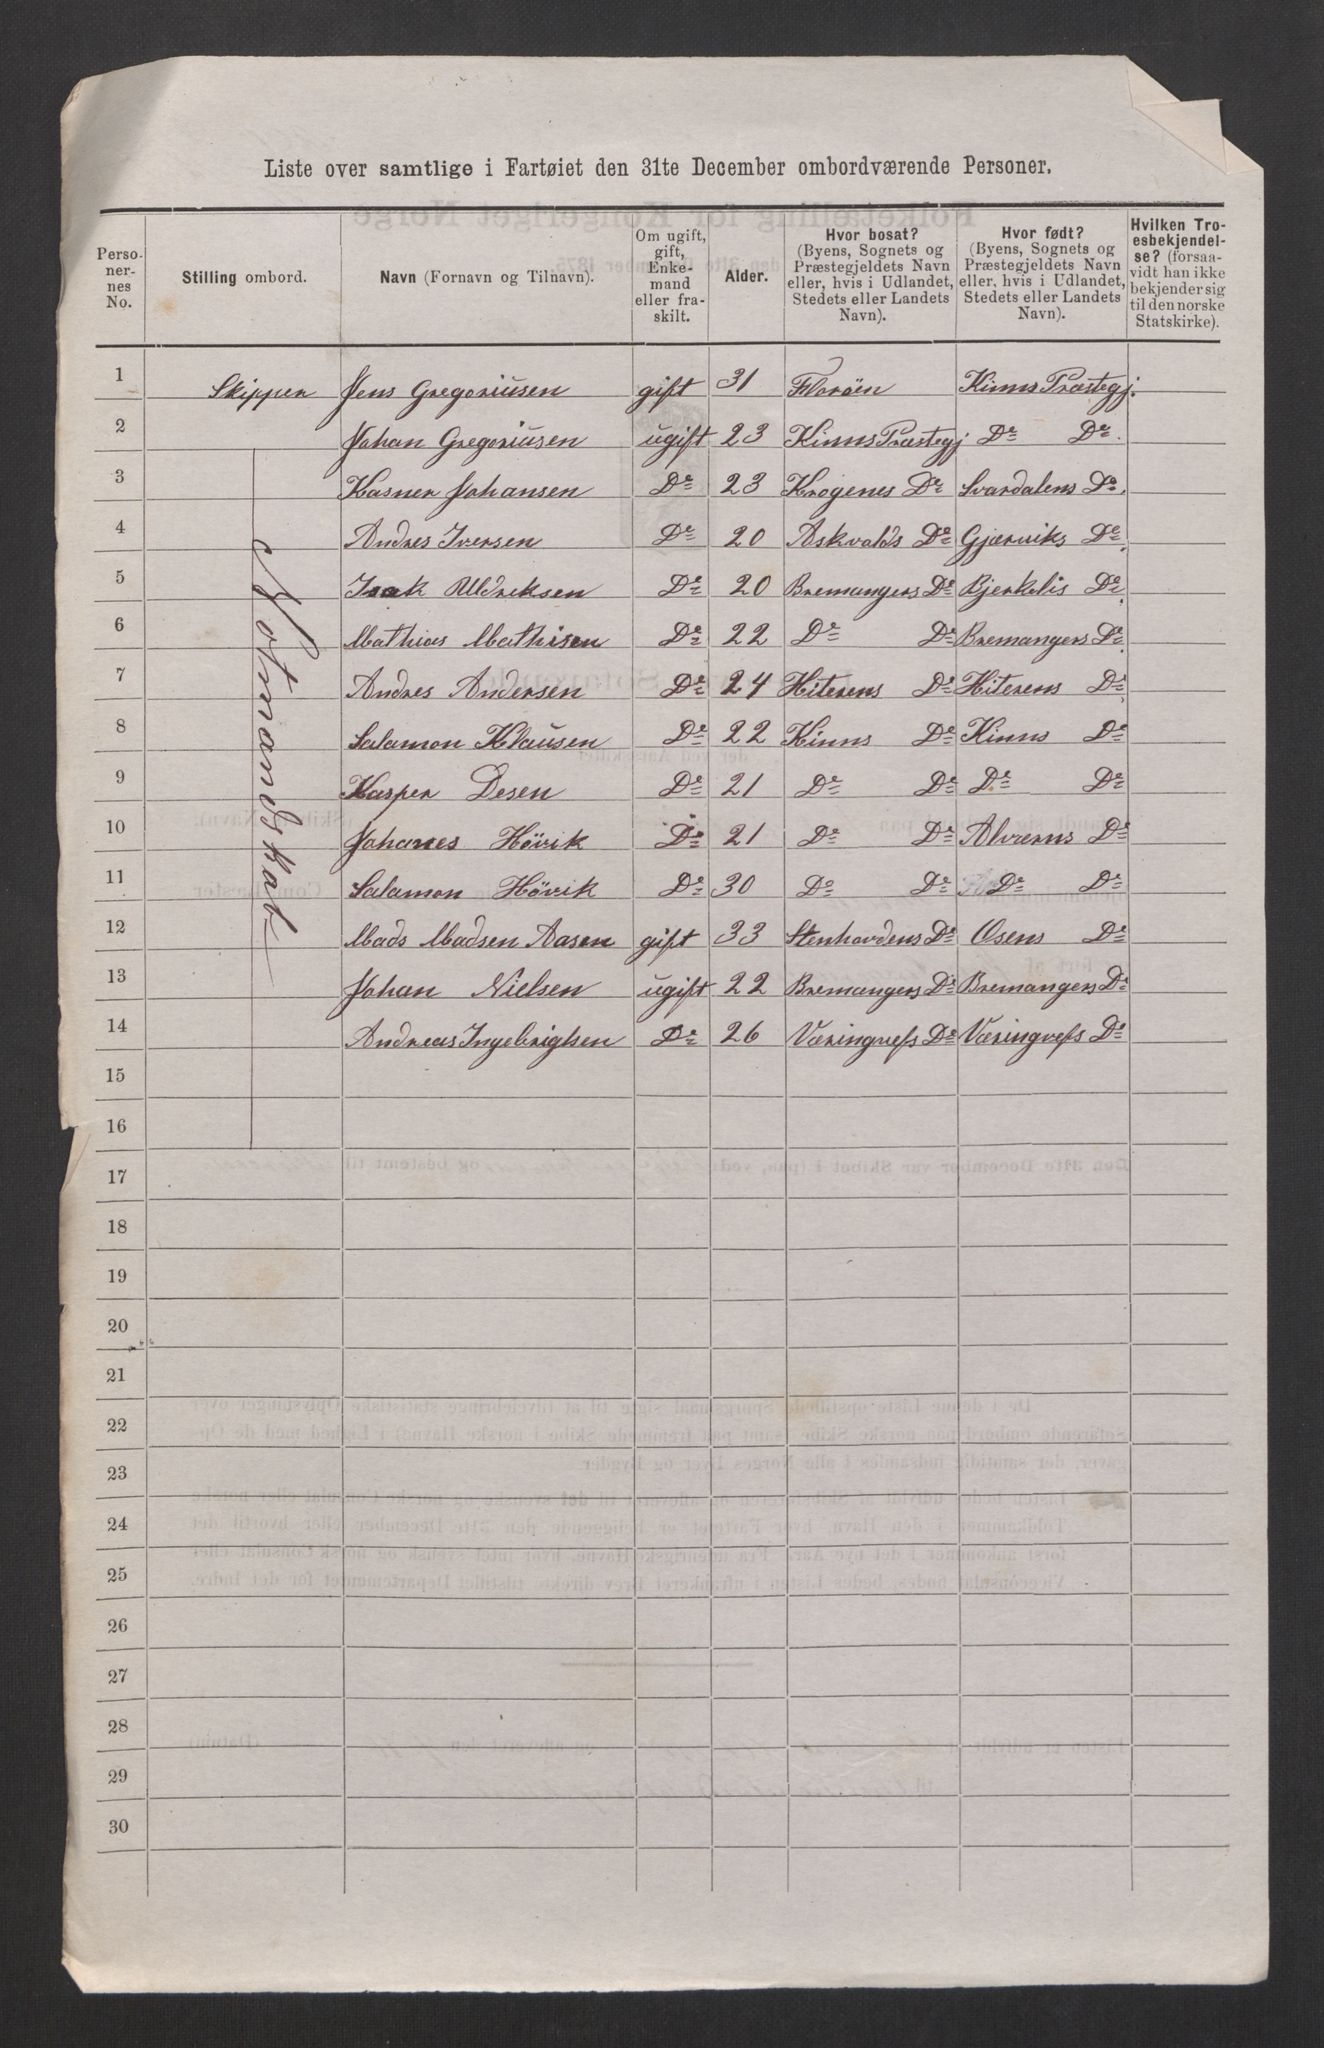 Liste over samtlige i Fartøiet den 31te December ombordværende Personer.
Perso-
ner-
nes
No.
Stilling ombord.
Navn (Fornavn og Tilnavn).
Om ugift,
gift,
Enke-
mand
eller fra-
skilt.
Alder.
Hvor bosat?
(Byens, Sognets og
Præstegjeldets Navn
eller, hvis i Udlandet,
Stedets eller Landets
Navn).
Hvor født?
(Byens, Sognets og
Præstegjeldets Navn
eller, hvis i Udlandet,
Stedets eller Landets
Navn).
Hvilken Tro-
esbekjendel-
se? (forsaa-
vidt han ikke
bekjender sig
til den norske
Statskirke).
1 Skipper Jens Gregoriusen gift 31 Florøen Kinns Præstegj.
2 Johan Gregoriusen ugift 23 Kinns Præstegj Do Do
3 Kasner Johansen Do 23 Krogenes Do Svardalens Do
4 Andres Iversen Do 20 Askvolds Do Gjærviks Do
5 Isak Uldriksen Do 20 Bremangers Do Bjerkelis Do
6 Mathias Mathisen Do 22 Do Do Bremangers Do
7 Andres Andersen Do 24 Hiterens Do Hiterens Do
8 Salamon Klausen Do 22 Kinns Do Kinns Do
9 Kasper Desen Do 21 Do Do Do Do
10 Johanes Høvik Do 21 Do Do Alværns Do
11 Salamon Høvik Do 30 Do Do Do Do
12 Mads Madsen Aasen gift 33 Stenhovdens Do Osens Do
13 Johan Nielsen ugift 22 Bremangers Do Bremangers Do
14 Andreas Ingebrigtsen Do 26 Væringnefs Do Væringnefs Do
Notmandskab
15
16
17
18
19
20
21
22
23
24
25
26
27
28
29
30